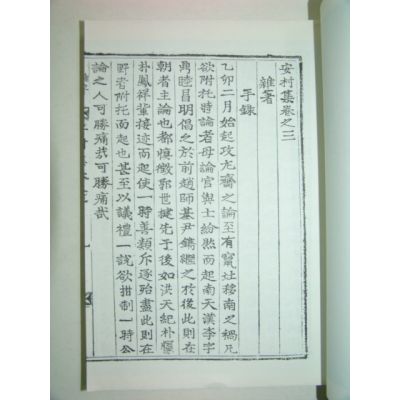 安村集卷之三
雜著
手錄
乙卯二月始起攻尤齋之論至有竄灶移南之禍凡
欲附托時論者毋論官與士紛然而起南天漢李宇
鼎睦昌明倡之於前趙師基尹鑴繼之於後此則在
朝者主論也都愼徵郭世揵先于後如洪天紀朴㦿
朴鳳祥輩接迹而起使一時善類斥逐殆盡此則在
野者附托而起也甚至以議禮一說欲拑制一時公
論之人可勝痛哉可勝痛哉